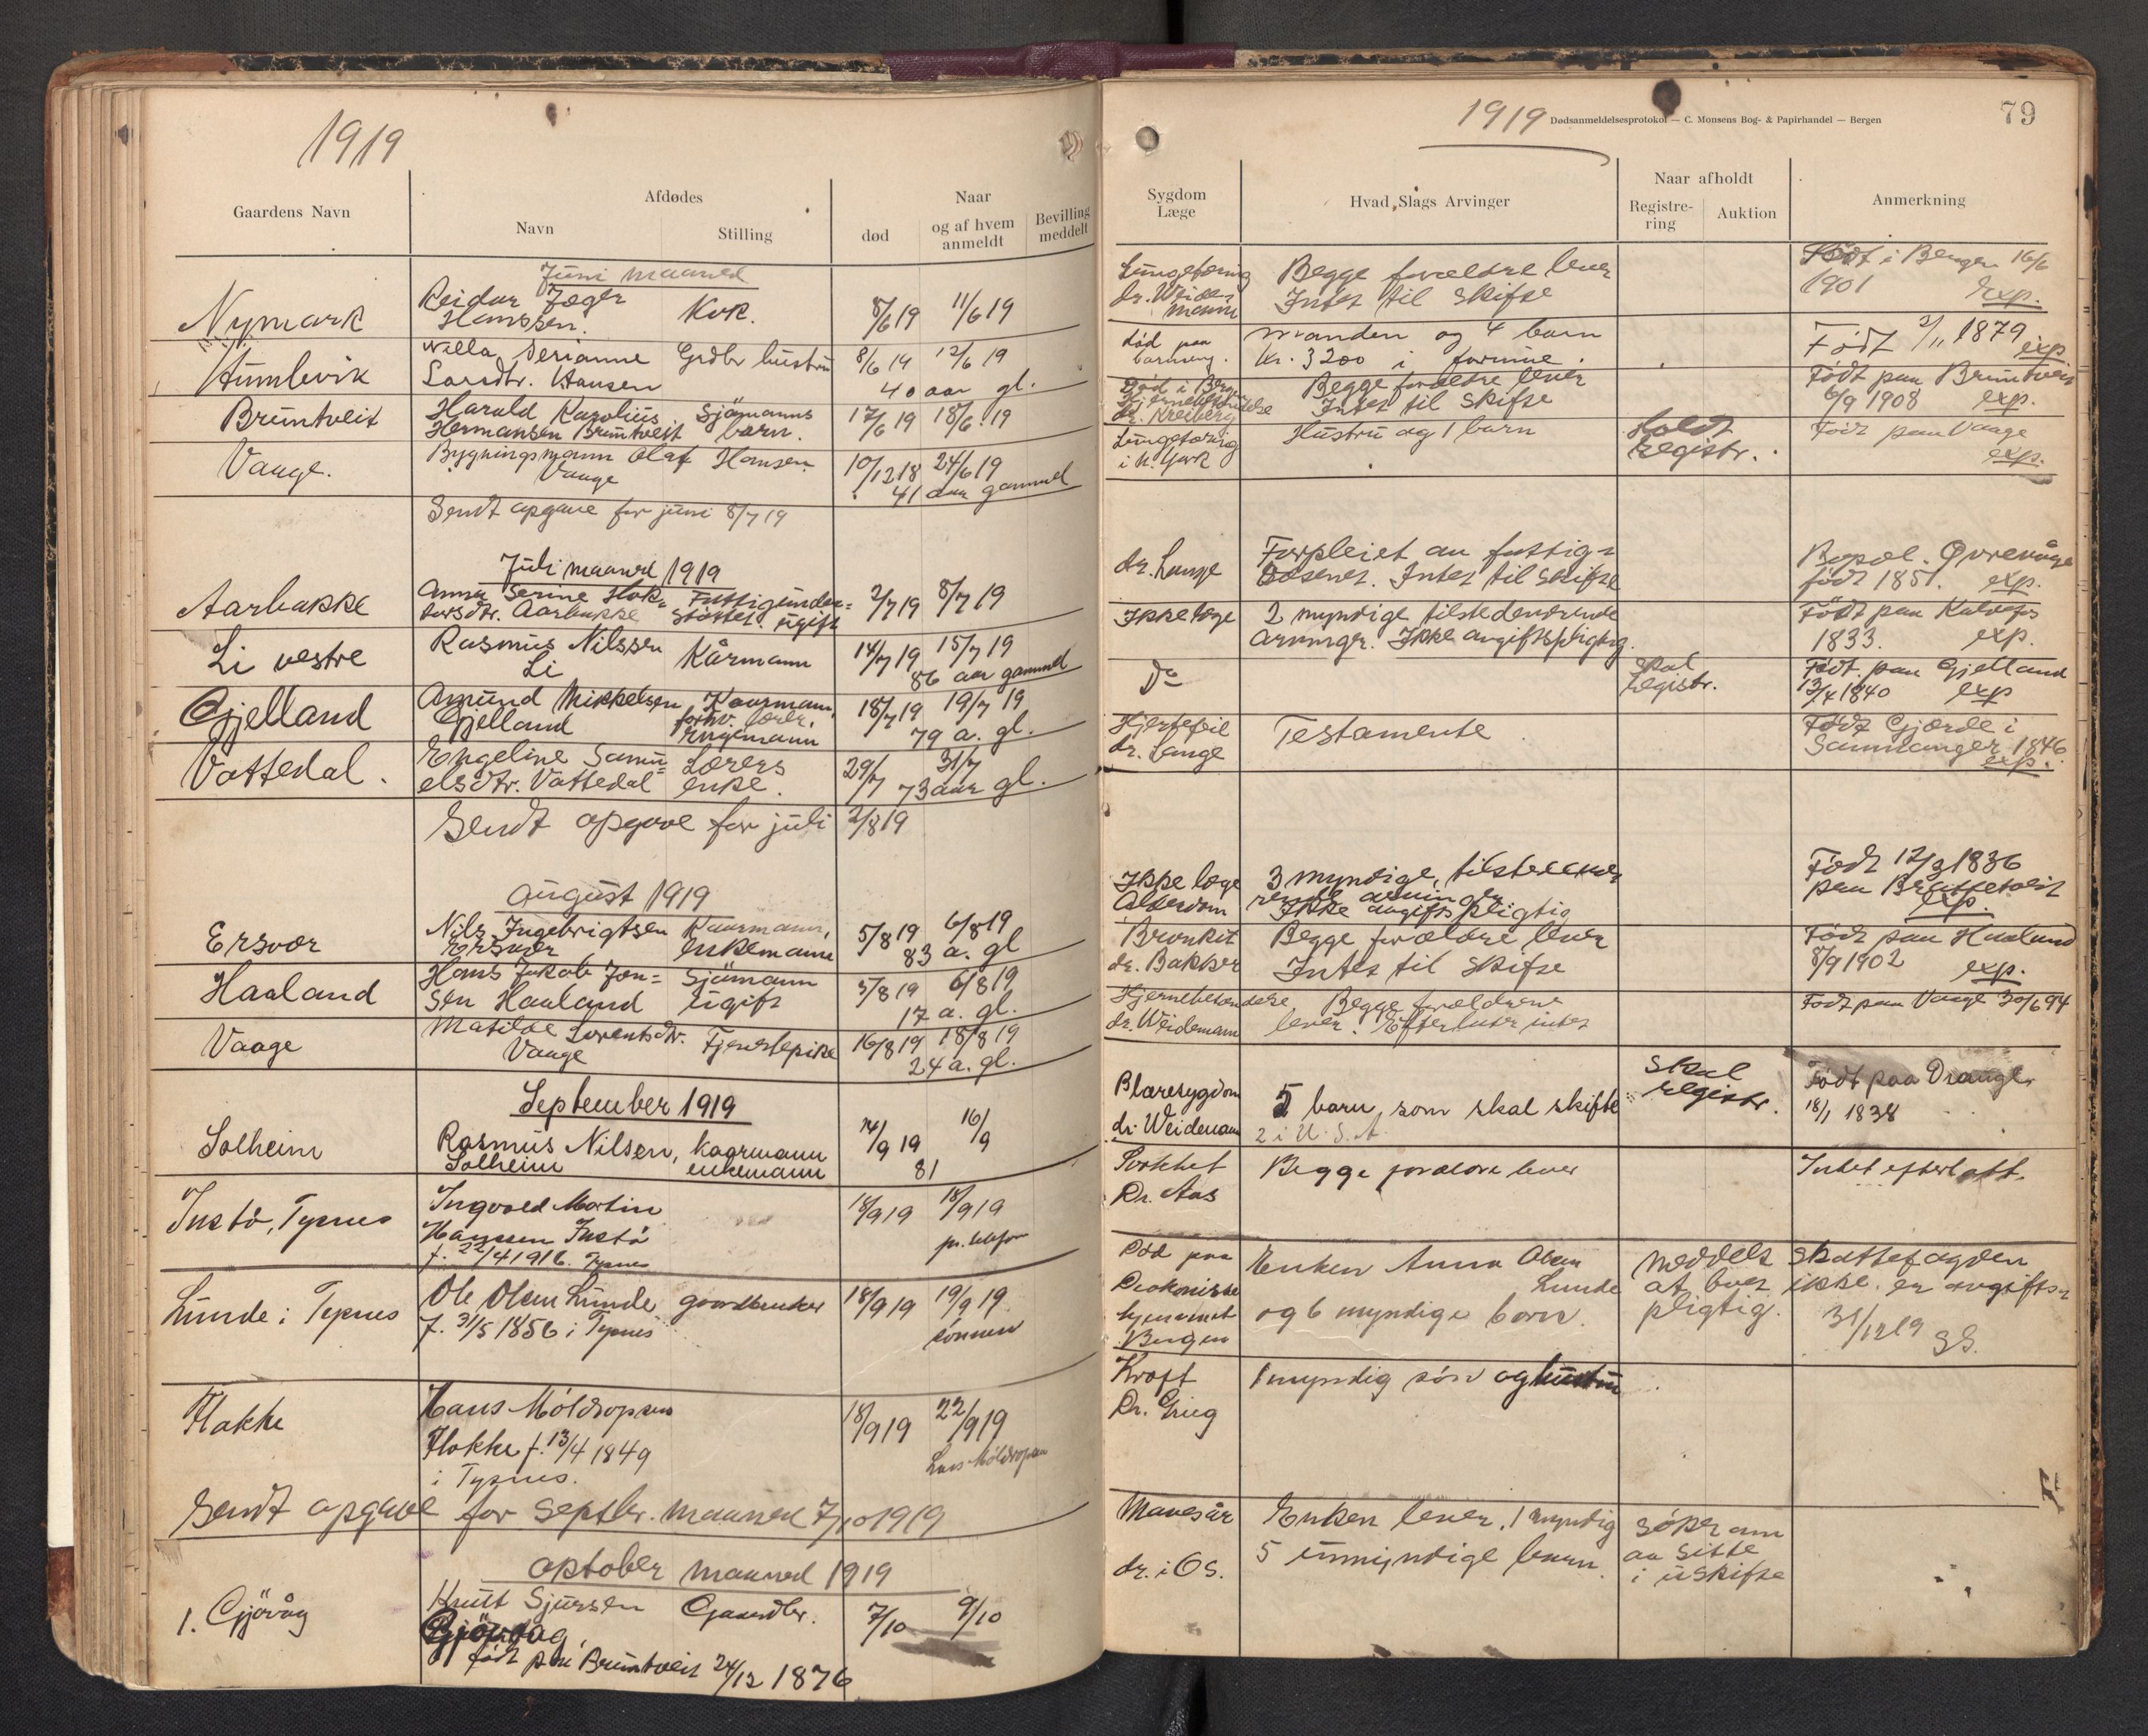 1919
Gaardens Navn
Afdødes
Navn
Stilling
Naar
død
og af hvem
anmeldt
Bevilling
meddelt
Juni maaned
Nymark
Reidar Jæger
Hanssen.
Kok.
8/6 19
11/6 19
Humlevik
Serianne
Larsdtr. Hansen
Grdbr hustru
8/6 19
12/6 19
40 aar gl.
Brüntveit
Harald Karolius
Hermansen Brüntveit
Sjömanns
barn.
17/6 19
18/6 19
Vaage.
Bygningsmann Olaf Hansen
Vaage
10/12 18
24/6 19
41 aar gammel
Sendt opgave for juni 8/7 19
Juli maaned 1919
Aarbakke
Anna Serine Hak-
torsdtr. Aarbakke
Fattigunder-
støttet. ugift
2/7 19
8/7 19
Li vestre
Rasmus Nilssen
Li
Kårmann
14/7 19
15/7 19
86 aar gammel
Gjelland
Amund Mikkelsen
Gjelland
Kaarmann,
forhv. lærer,
18/7 19
19/7 19
79 a. gl.
Vattedal.
Engeline Samu-
elsdtr. Vattedal
Lærers
enke.
29/7
31/7
73 aar gl.
Sendt opgave for juli 2/8 19
August 1919
Ersvær
Nils Ingebrigtsen
Ersvær
Kaarmann,
enkemann
5/8 19
6/8 19
83 a. gl
Haaland
Hans Jakob Jon-
sen Haaland
Sjömann
ugift
5/8 19
6/8 19
17 a. gl.
Vaage
Matilde Lorentsdtr.
Vaage
Tjenestepike
16/8 19
18/8 19
24 a. gl.
September 1919
Solheim
Rasmus Nilsen,
Solheim
kaarmann
enkemann
14/9 19
16/9
81
Instö, Tysnes
Ingvald Martin
Hanssen Instö
f. 22/4 1916. Tysnes
18/9 19
18/9 19
pr. telefon
Lunde i Tysnes
Ole Olsen Lunde
f. 31/5 1856 i Tysnes
gaardbruker
18/9 19
19/9 19
sønnen
Flakke
Hans Möldropsen
Flakke f. 13/4 1849
i Tysnes.
18/9 19
22/9 19
Lars Möldropsen
Sendt opgave for septbr. maaned 7/10 1919
Oktober maaned 1919
1. Gjövåg
Knut Sjursen
Gjövaag,
født paa Brüntveit 24/12 1876
Gaardbr.
7/10
9/10
1919
Dødsanmeldelsesprotokol — C. Monsens Bog- & Papirhandel — Bergen
79
Sygdom
Læge
Hvad Slags Arvinger
Naar afholdt
Registre-
ring
Auktion
Anmerkning
Lungetæring
dr. Weide-
mann
Begge forældre lever
Intet til Skifte
Født i Bergen 16/6
1901
exp.
død paa
barnseng.
Manden og 4 barn
Kr. 3200 i formue.
Født 3/11 1879
exp
Død i Bergen
Begge forældre lever
Intet til Skifte
Født paa Brüntveit
6/9 1908
exp.
Lungetæring
i N. York
Hustru og 1 barn
holdt
registr.
Født paa Vaage
exp.
dr. Lange
Forpleiet av fattig-
væsenet. Intet til skifte
Bopæl. Øvrevåge
født 1851.
exp.
Ikke læge
2 myndige tilstedeværende
arvinger. Ikke avgiftspligtig.
Født paa Kalvenes
1833.
exp.
Do
skal
registr.
Født paa Gjelland
13/4 1840
exp
Hjertefeil
dr. Lange
Testamente
Født Gjærde i
Samnanger 1846
exp.
Ikke læge
Alderdom
3 myndige, tilstedevæ-
rende arvinger
Ikke avgiftspligtig
Født 12/3 1836
paa Brattetveit
exp.
Bronkit
dr. Bakker
Begge forældre lever
Intet til skifte
Født paa Haaland
8/9 1902
exp.
Hjernebetændelse
dr. Weidemann
Begge forældrene
lever. Efterlater intet
Født paa Vaage 30/6 94
Blæresygdom
dr. Weidemann
5 barn, som skal skifte
2 i U.S.A.
skal
registr.
Født paa Drange
18/1 1838
Dr. Aas
Begge forældre lever
Intet efterlatt.
Død paa
Diakonisse
hjemmet
Bergen
Enken Anna Olsen
Lunde
og 6 myndige born.
Meddelt skattefogden
at boet ikke er avgifts-
pligtig.
31/12 19
Kræft
Dr. Grieg
1 myndig sön og hustru
Mavesår
dr. i Os.
Enken lever. 1 myndig
5 umyndige barn.
söker om
aa sitte
i uskifte